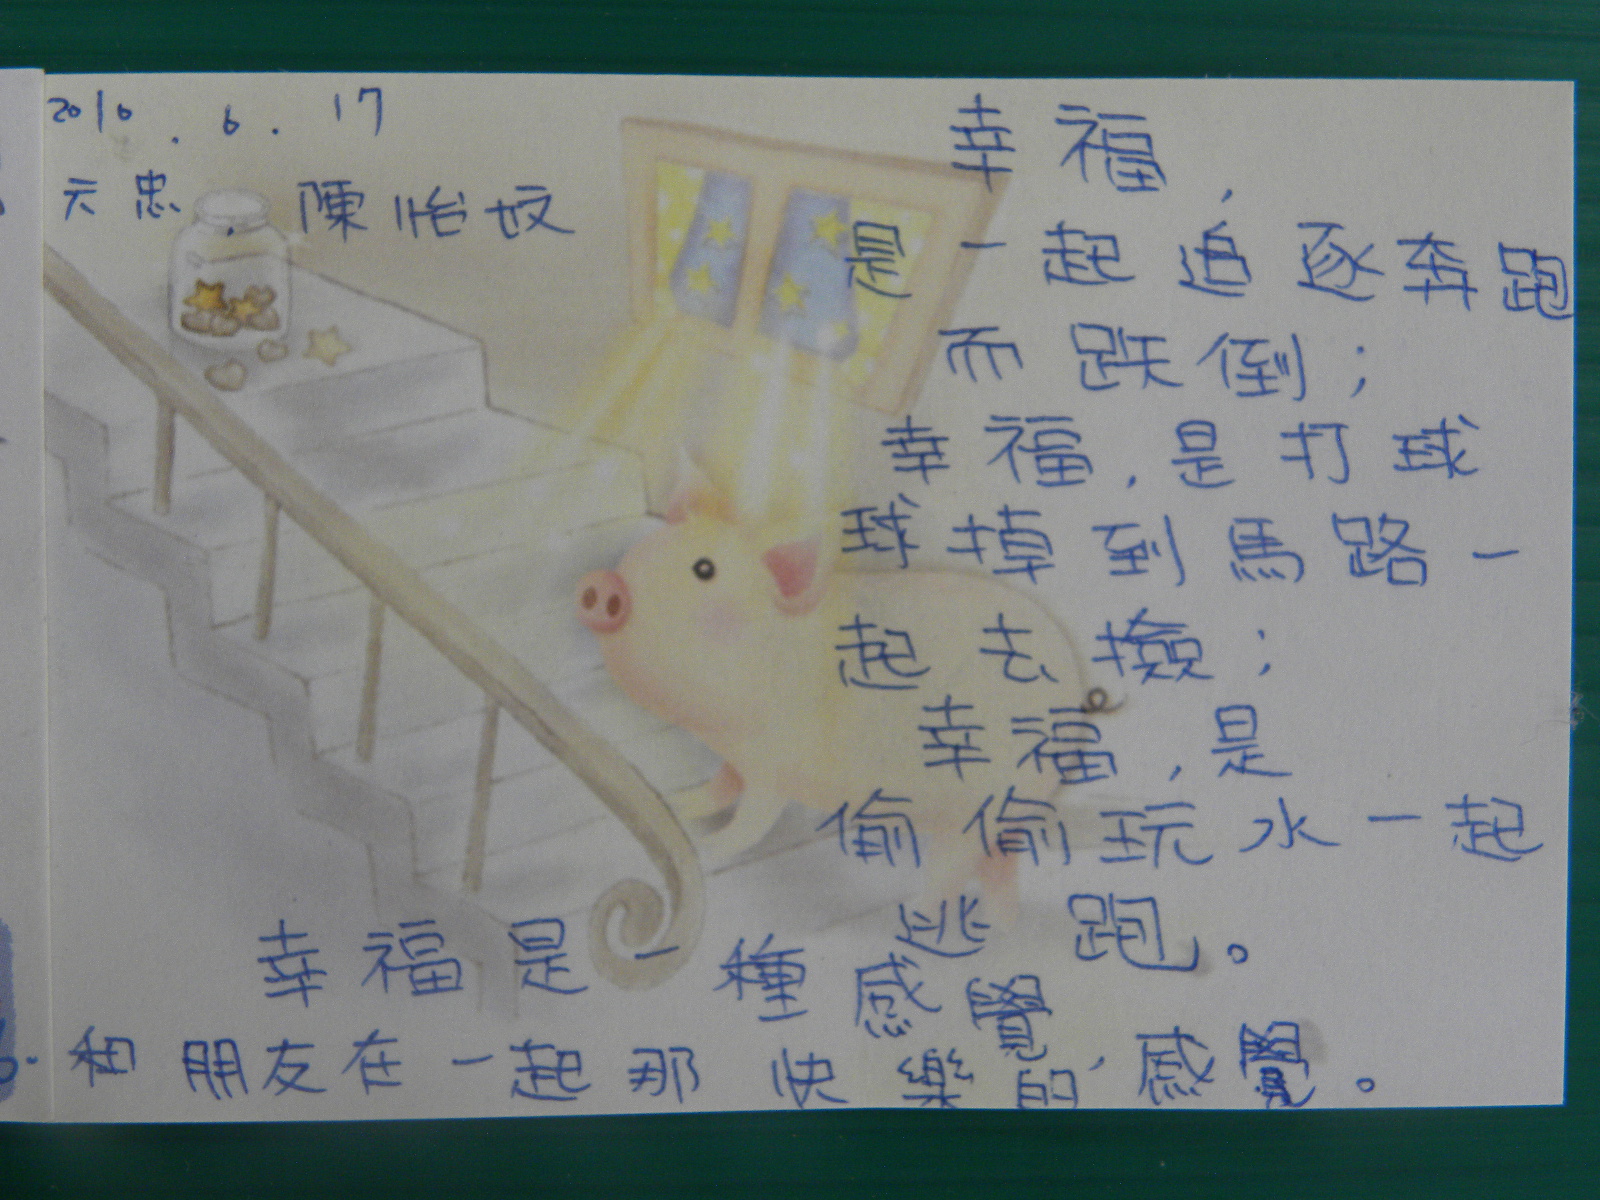 2010.6.17
六忠,陳怡妏
幸福,
是一起追逐奔跑
而跌倒;
幸福,是打球
球掉到馬路一
起去撿;
幸福,是
偷偷玩水一起
逃跑。
幸福是一種感覺,
和朋友在一起那快樂的感覺。